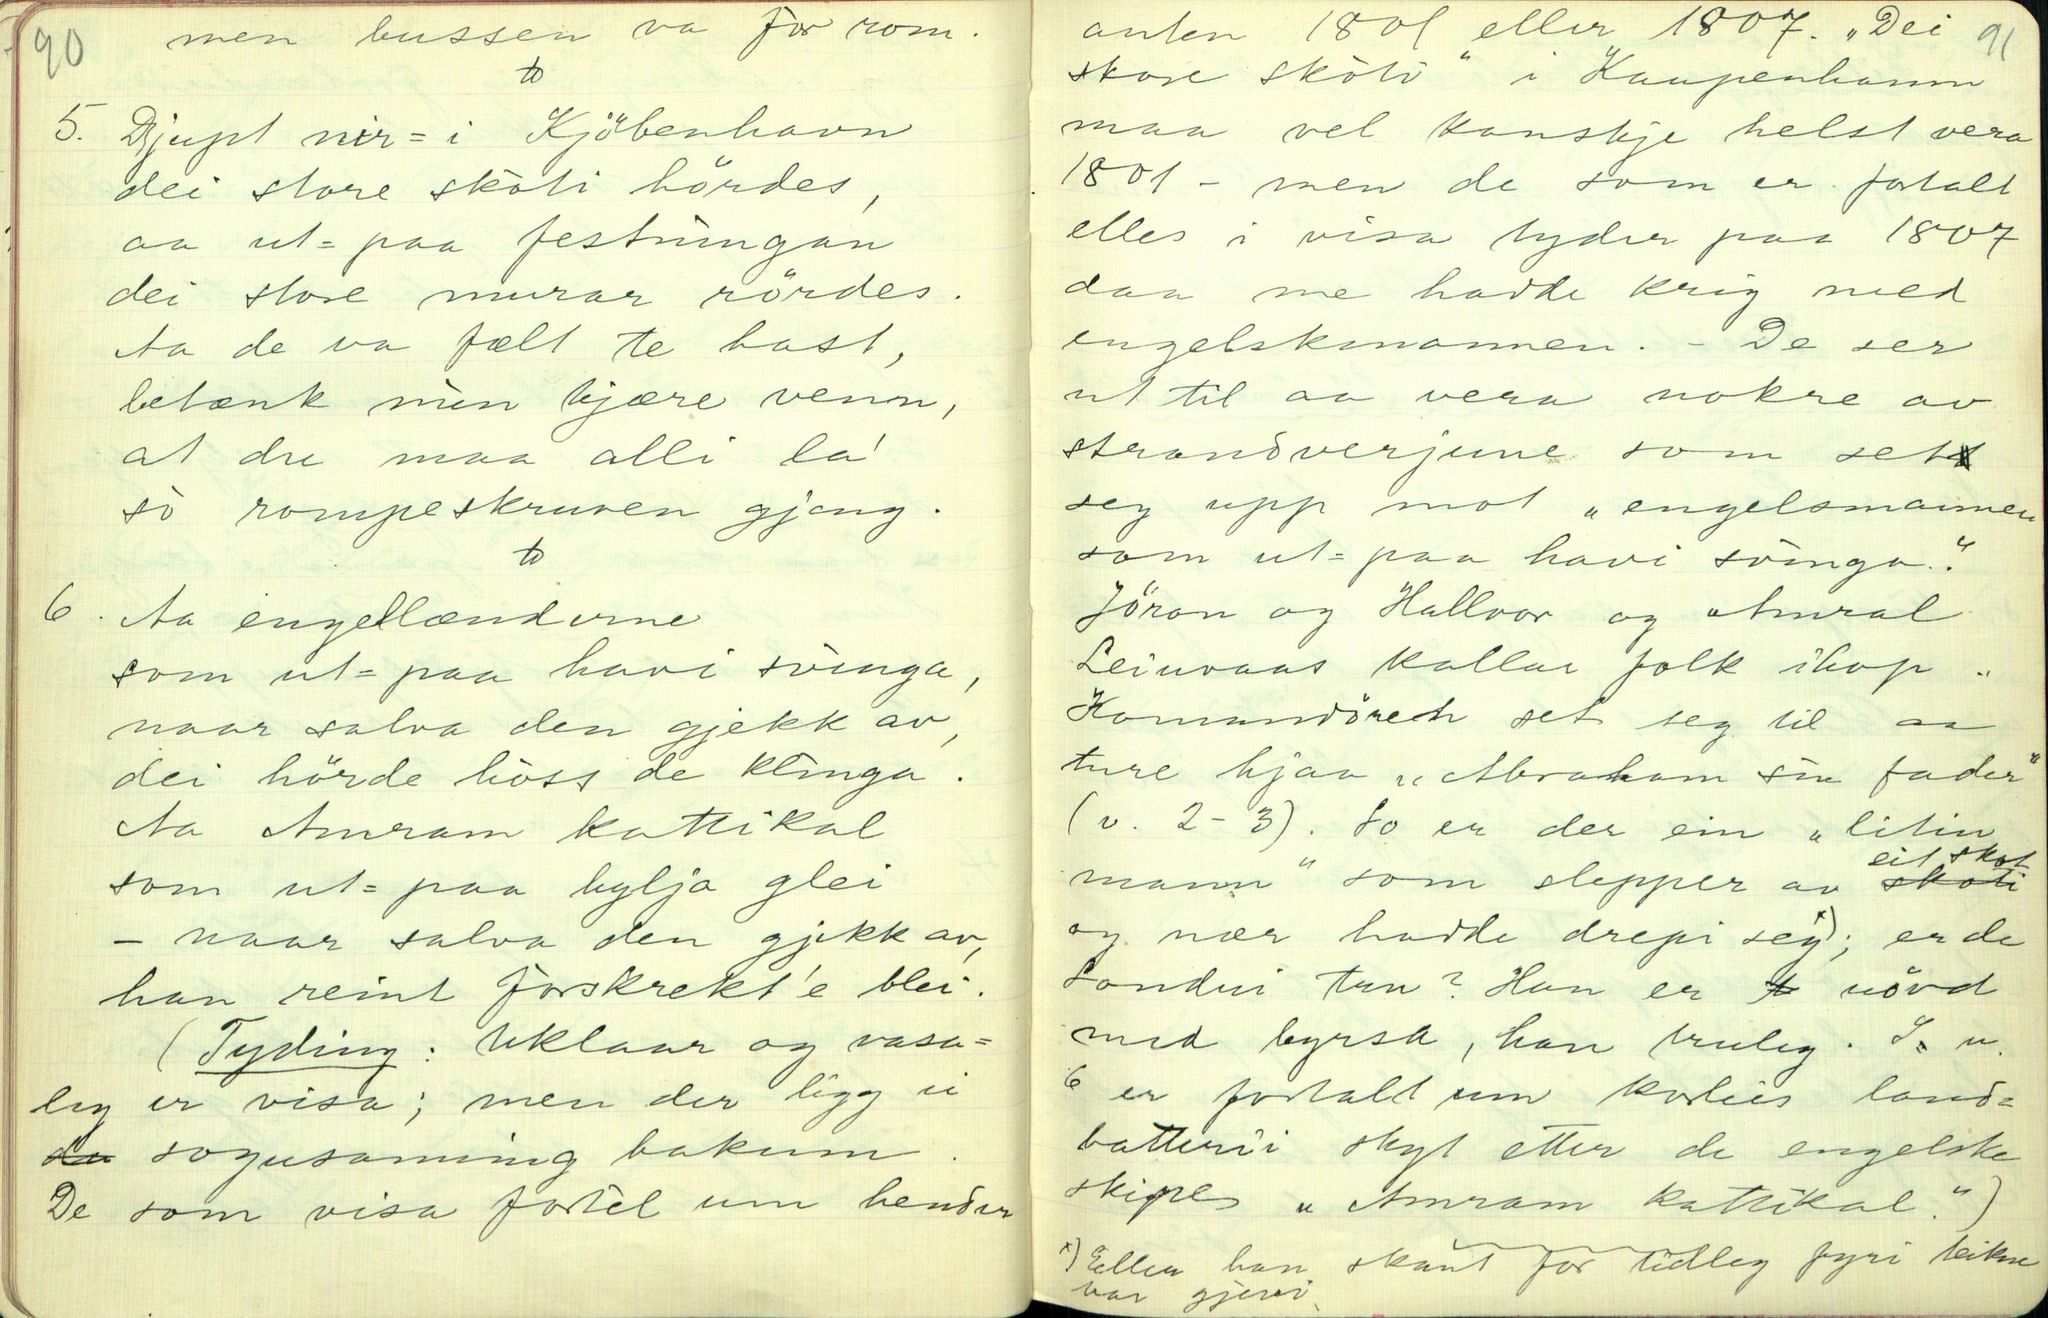 90
men bussen va før rom.
5. Djupt nir = i Kjöbenhavn
dei store skòti hördes,
aa ut = paa festningan
dei store murar rördes.
Aa de va fælt te hast,
betænk min kjære venn,
at du maa alli la'
sò rompeskruven gjeng.
6. Aa engellænderne
som ut = paa havi svinga,
naar salva den gjekk av,
dei hörde hòss de klinga.
Aa Amram kattikal
som ut = paa bylja glei
– naar salva den gjekk av,
han reint forskrekt'e blei.
(Tyding: Uklaar og vasa=
leg er visa; men der ligg ei
sogusanning bakum.
De som visa fortel um hender
91
anten 1801 eller 1807. „Dei
store skòti" i Kaupenhamn
maa vel kanskje helst vera
1801 – men de som er fortalt
elles i visa tyder paa 1807
daa me hadde krig med
engelskmannen. – De ser
ut til aa vera nokre av
strandverjune som set
seg upp mot „engelsmannen
som ut = paa havi svinga".
Jöran og Hallvor og Amral
Leinvaas kallar folk ihop.
Komandören set seg til aa
ture hjaa „Abraham sin fader"
(v. 2-3). So er der ein „litin
mann" som slepper av skoti eit skot
og nær hadde drepi seg x); er de
Sondrei tru? Han er uövd
med byrsa, han truleg. I v.
6 er fortalt um korleis land=
batteri'i skyt etter de engelske
skipe „Amram kattikal".)
x) Eller han skaut for tidleg fyri teikne
var gjevi.